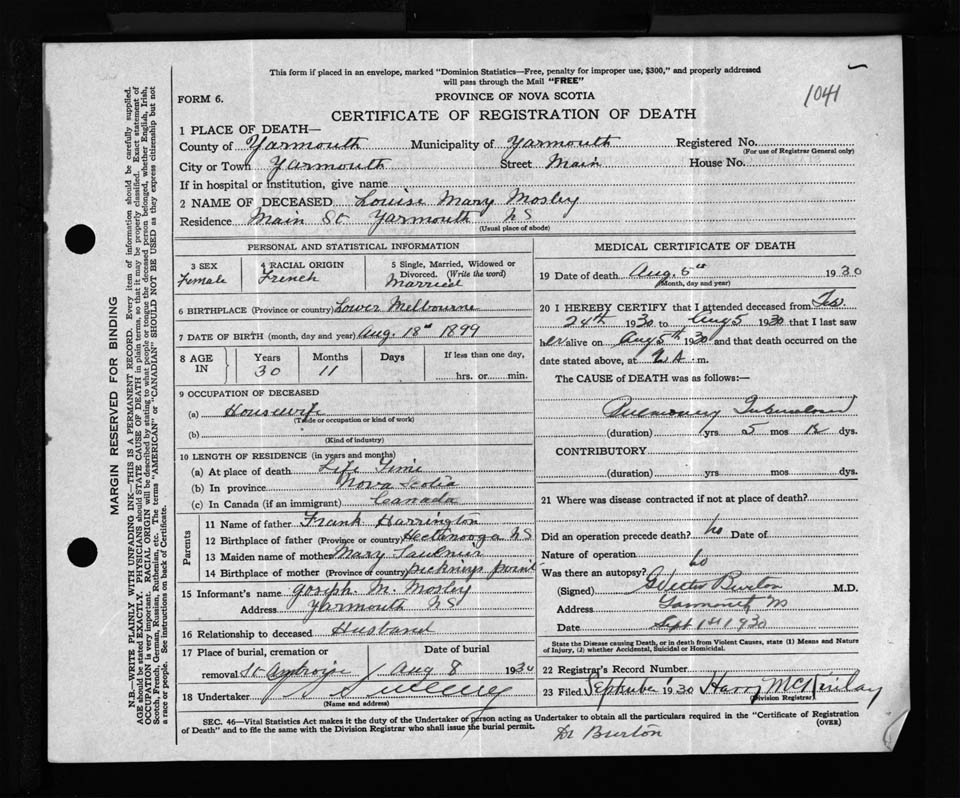 This form if placed in an envelope, marked "Dominion Statistics—Free, penalty for improper use, $300," and properly addressed
will pass through the Mail "FREE"
1041
FORM 6.
PROVINCE OF NOVA SCOTIA
CERTIFICATE OF REGISTRATION OF DEATH
1 PLACE OF DEATH—
County of Yarmouth Municipality of Yarmouth Registered No.
(For use of Registrar General only)
City or Town Yarmouth Street Main House No.
If in hospital or Institution, give name
2 NAME OF DECEASED Louise Mary Mosley
Residence Main St Yarmouth NS
(Usual place of abode)
PERSONAL AND STATISTICAL INFORMATION
3 SEX
Female
4 RACIAL ORIGIN
French
5 Single, Married, Widowed or
Divorced. (Write the word)
Married
6 BIRTHPLACE (Province or country) Lower Melbourne
7 DATE OF BIRTH (month, day and year) Aug. 18th 1899
8 AGE IN
Years Months Days If less than one day,
30 11
hrs. or min.
9 OCCUPATION OF DECEASED
(a) Housewife
(Trade or occupation or kind of work)
(b)
(Kind of industry)
10 LENGTH OF RESIDENCE (in years and months)
(a) At place of death Life Time
(b) In province Nova Scotia
(c) In Canada (if an immigrant) Canada
Parents
11 Name of father Frank Harrington
12 Birthplace of father (Province or country) Hectanooga NS
13 Maiden name of mother Mary Saulnier
14 Birthplace of mother (Province or country) Pickneys point
15 Informant's name Joseph. M. Mosley
Address Yarmouth NS
16 Relationship to deceased Husband
17 Place of burial, cremation or removal Date of burial
St Ambroise Aug 8 1930
18 Undertaker Sweeney
(Name and address)
MEDICAL CERTIFICATE OF DEATH
19 Date of death Aug. 5th 1930
(Month, day and year)
20 I HEREBY CERTIFY that I attended deceased from Feb.
24th 1930 to Aug 5 1930 that I last saw
her alive on Aug 5th 1930 and that death occurred on the
date stated above, at m.
The CAUSE OF DEATH was as follows:—
Pulmonary Tuberculosis
(duration) yrs 5 mos 12 dys.
CONTRIBUTORY
(duration) yrs. mos. dys.
21 Where was disease contracted if not at place of death?
Did an operation precede death? no Date of
Nature of operation
Was there an autopsy? no
(Signed) Burton M.D.
Address Yarmouth NS
Date Sept 1st 1930
State the Disease causing Death, or in death from Violent Causes, state (1) Means and Nature
of Injury, (2) whether Accidental, Suicidal or Homicidal.
22 Registrar's Record Number
23 Filed September 1 1930 Harry McKinlay
Division Registrar
(OVER)
SEC. 46—Vital Statistics Act makes it the duty of the Undertaker or person acting as Undertaker to obtain all the particulars required in the "Certificate of Registration
of Death" and to file the same with the Division Registrar who shall issue the burial permit.
Dr Burton
MARGIN RESERVED FOR BINDING
N.B.—WRITE PLAINLY WITH UNFADING INK—THIS IS A PERMANENT RECORD. Every item of information should be carefully supplied.
AGE should be stated EXACTLY. PHYSICIANS should STATE CAUSE OF DEATH in plain terms, so that it may be properly classified. Exact statement of
OCCUPATION is very important. RACIAL ORIGIN will be described by stating to what people or tongue the deceased person belonged, whether English, Irish,
Scotch, French, German, Russian, Ruthenian, etc. The terms "AMERICAN" or "CANADIAN" SHOULD NOT BE USED as they express citizenship but not
a race or people. See instructions on back of Certificate.